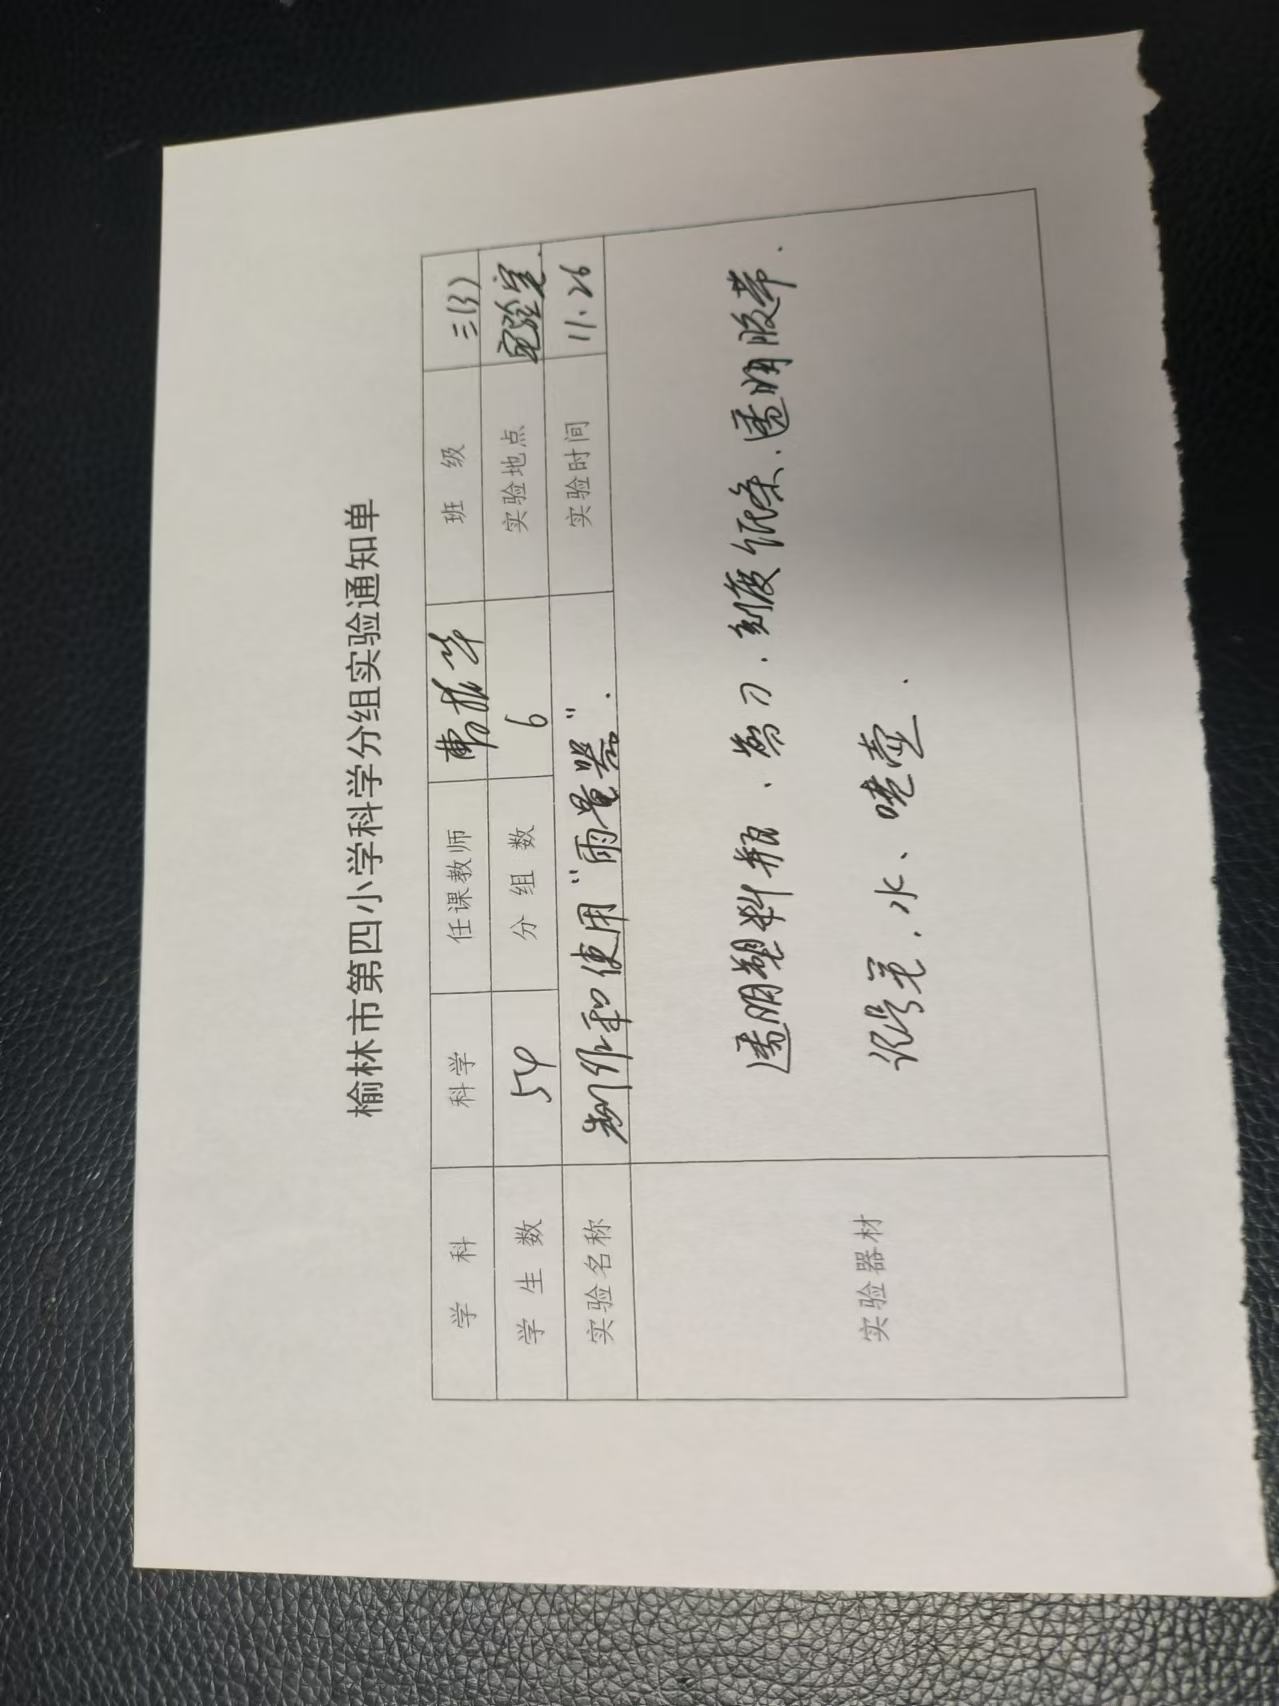 榆林市第四小学科学分组实验通知单
学 科 科学 任课教师 曹振华 班 级 三(3)
学 生 数 54 分 组 数 6 实验地点 实验室.
实验名称 制作和使用“雨量器”. 实验时间 11.26
实验器材 透明塑料瓶、剪刀、刻度纸条、透明胶带.
记号笔、水、喷壶.